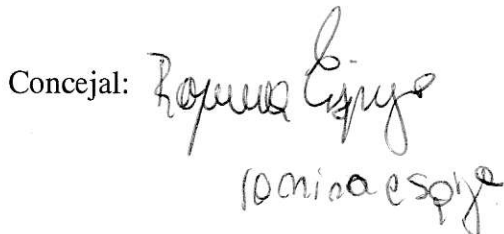 Concejal: Romina Espija
romina espija